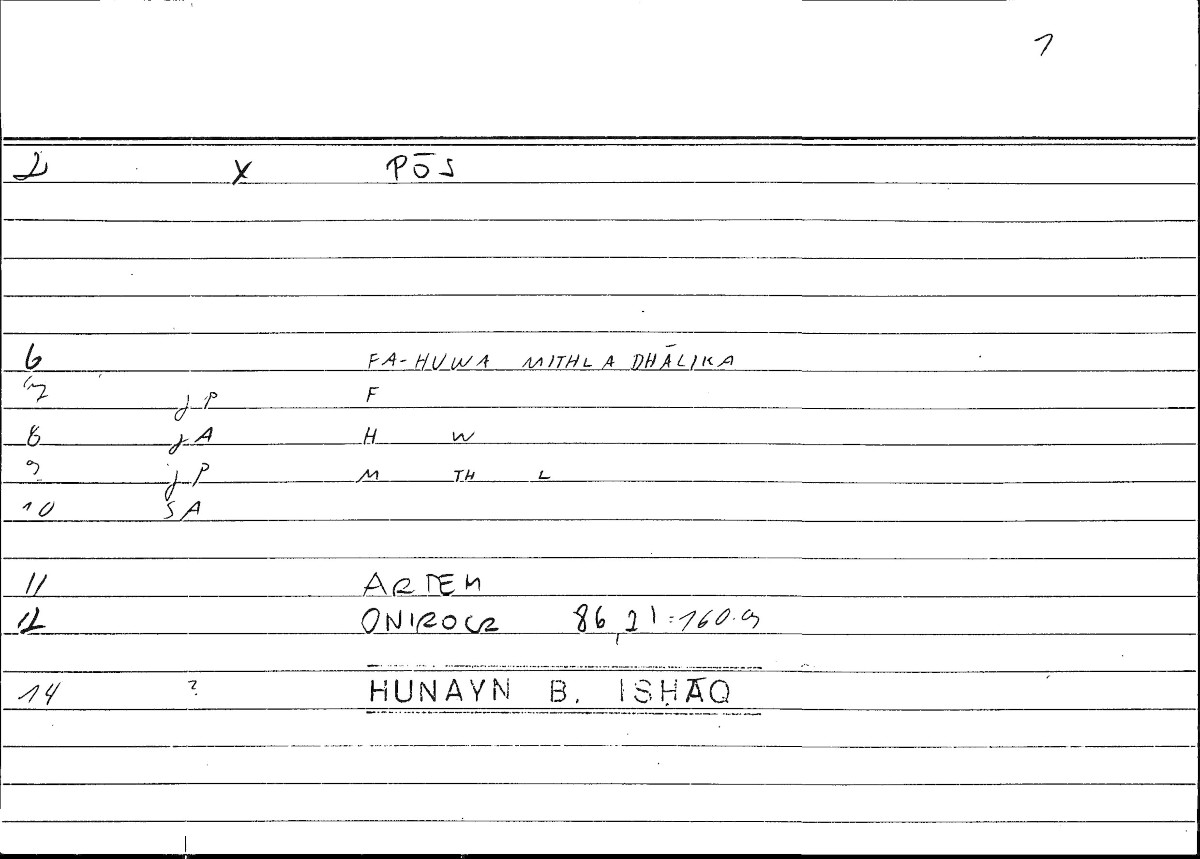 1
2 X PŌS
6 FA-HUWA MITHLA DHĀLIKA
7 j P F
8 j A H W
9 j P M TH L
10 S A
11 ARTEM
12 ONIROCR 86,21:160.9
14 ? HUNAYN B. ISḤĀQ